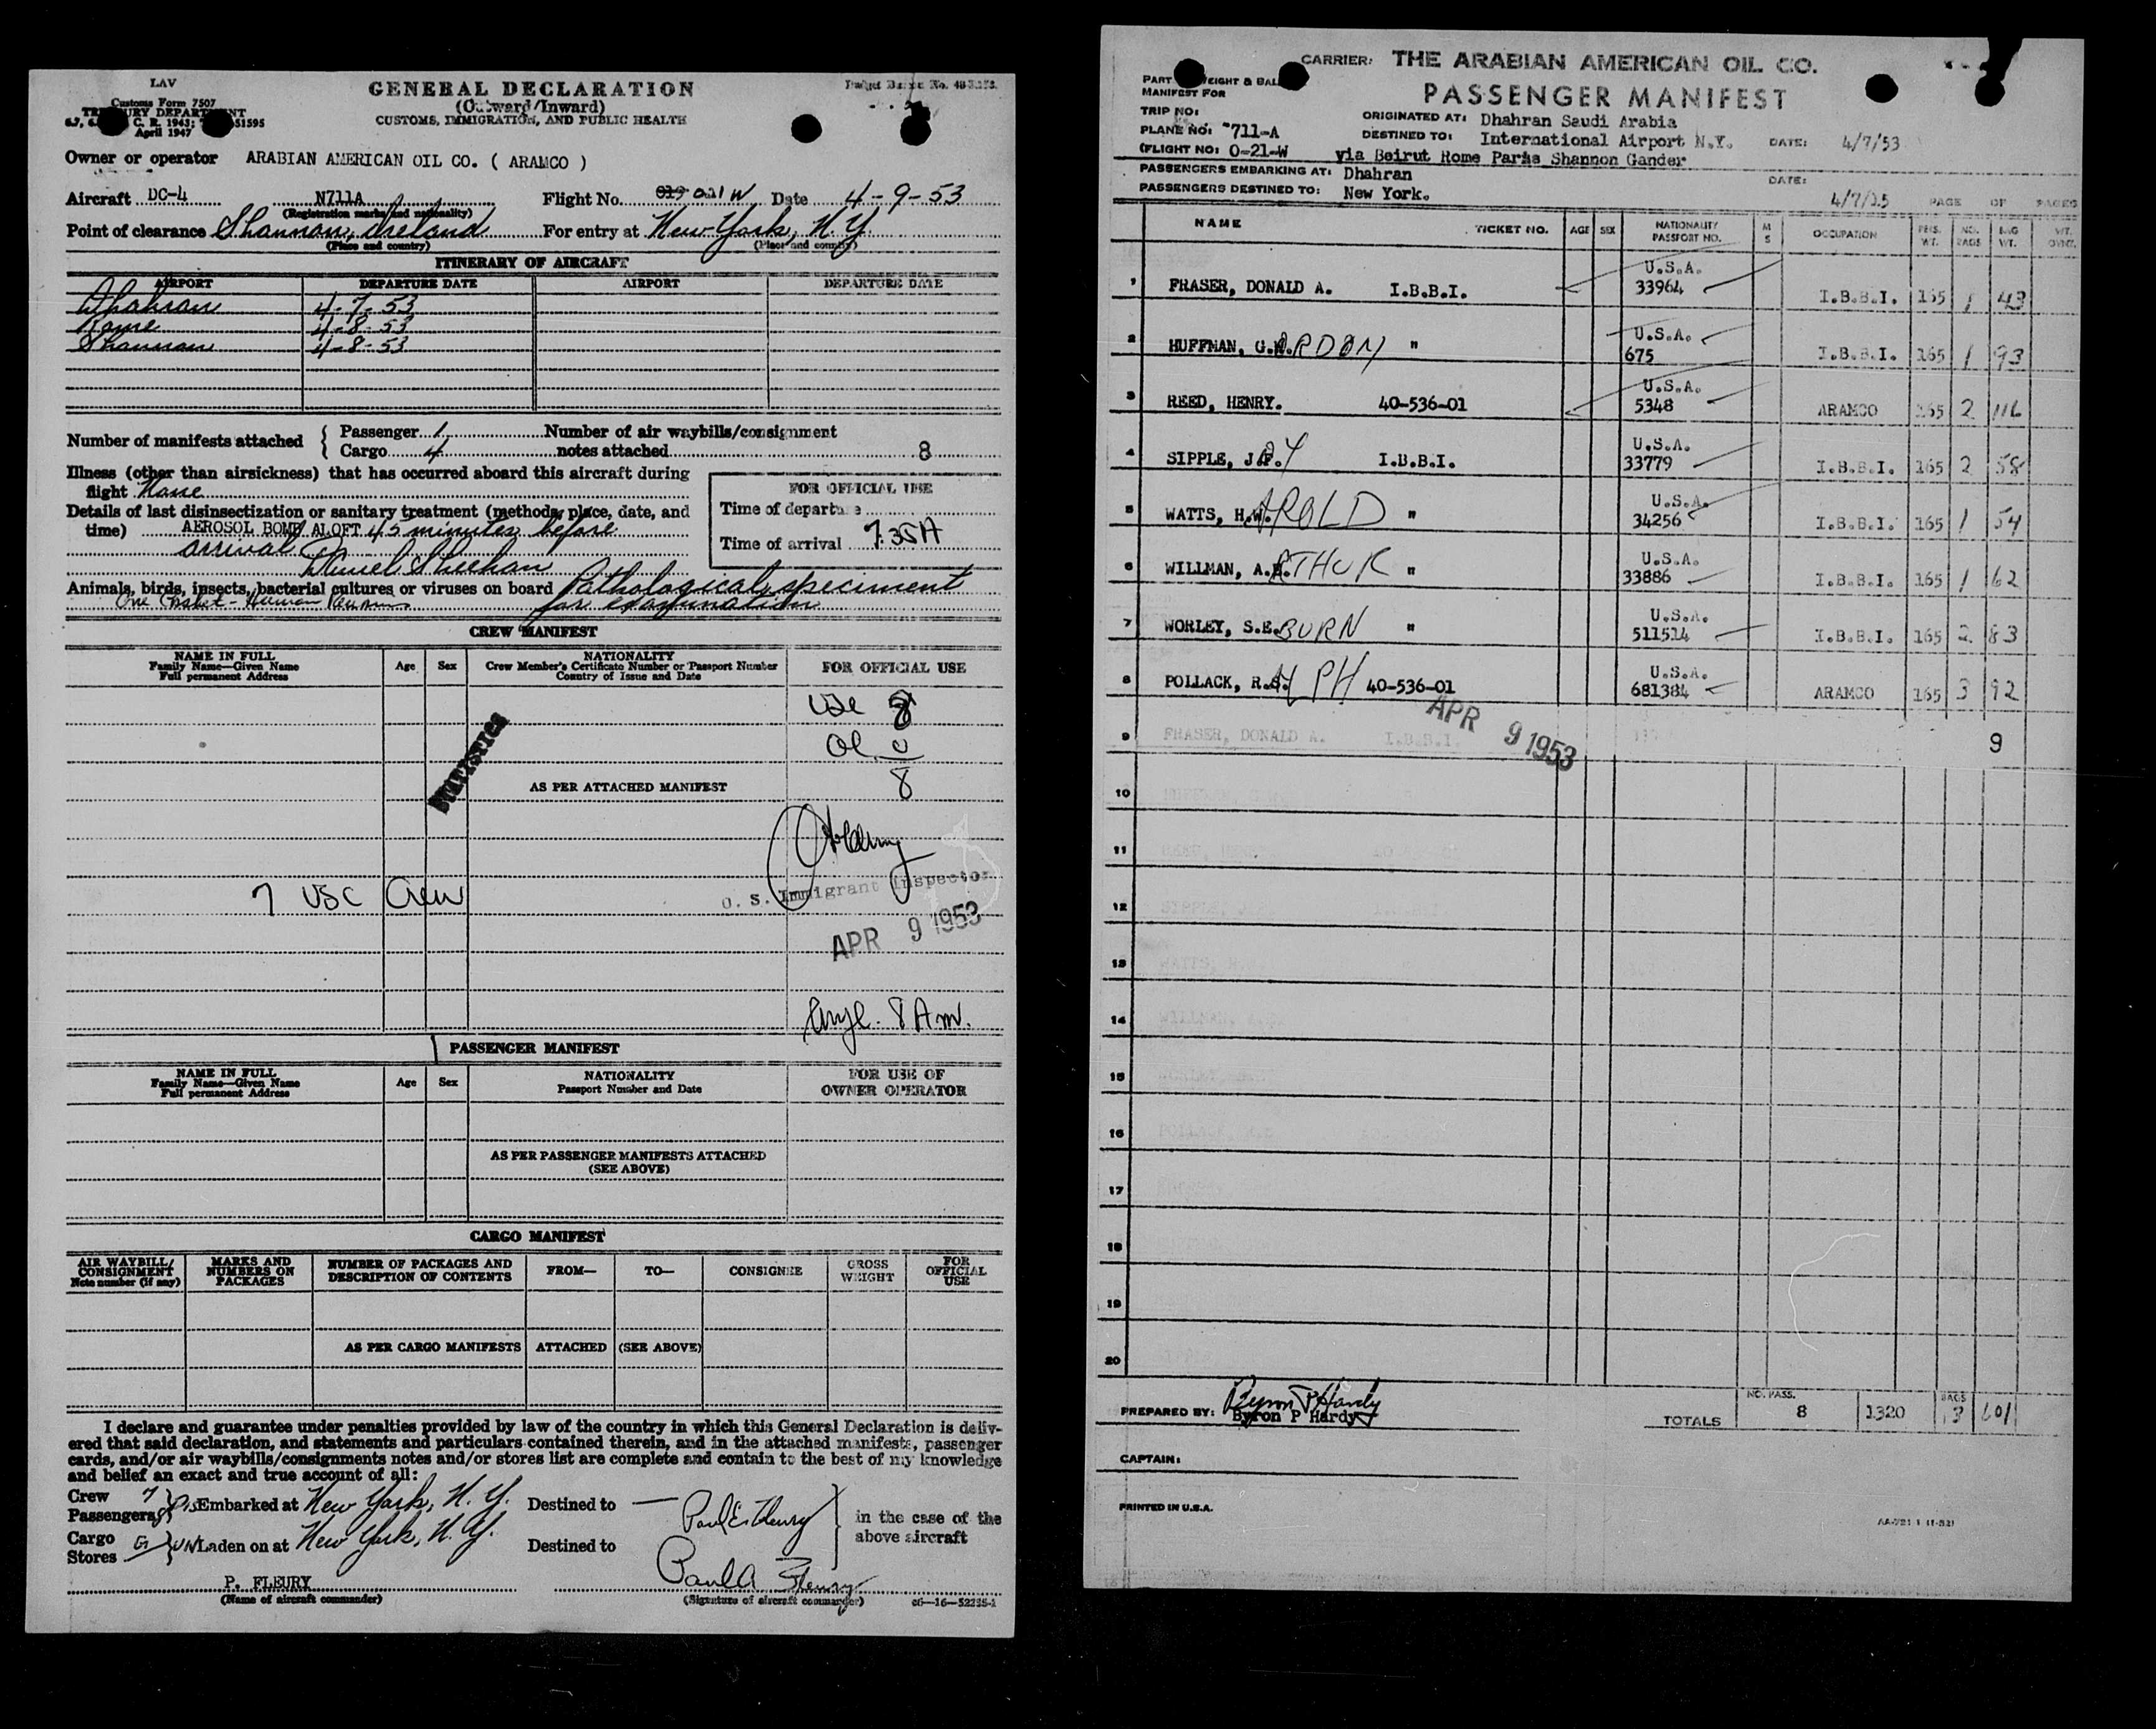 LAV
Customs Form 7507
TREASURY DEPARTMENT
C. R. 1943; 51595
April 1947
GENERAL DECLARATION
(Outward/Inward)
CUSTOMS, IMMIGRATION, AND PUBLIC HEALTH
Owner or operator ARABIAN AMERICAN OIL CO. ( ARAMCO )
Aircraft DC-4 N711A Flight No. 019 021 W Date 4-9-53
(Registration marks and nationality)
Point of clearance Shannon, Ireland For entry at New York, N.Y.
(Place and country) (Place and country)
ITINERARY OF AIRCRAFT
AIRPORT DEPARTURE DATE AIRPORT DEPARTURE DATE
Dhahran 4-7-53
Rome 4-8-53
Shannon 4-8-53
Number of manifests attached { Passenger 1 Number of air waybills/consignment
Cargo 4 notes attached 8
Illness (other than airsickness) that has occurred aboard this aircraft during
flight None
Details of last disinsectization or sanitary treatment (methods, place, date, and
time) AEROSOL BOMB ALOFT 45 minutes before
arrival Daniel Sheehan
FOR OFFICIAL USE
Time of departure
Time of arrival 7:35A
Animals, birds, insects, bacterial cultures or viruses on board Pathological speciment
One Casket - Human Remains for examination
CREW MANIFEST
NAME IN FULL
Family Name—Given Name
Full permanent Address
Age Sex
NATIONALITY
Crew Member's Certificate Number or Passport Number
Country of Issue and Date
FOR OFFICIAL USE
USC 8
Ol 0
8
AS PER ATTACHED MANIFEST
7 USC Crew
U. S. Immigrant Inspector
APR 9 1953
8 Am.
PASSENGER MANIFEST
NAME IN FULL
Family Name—Given Name
Full permanent Address
Age Sex
NATIONALITY
Passport Number and Date
FOR USE OF
OWNER OPERATOR
AS PER PASSENGER MANIFESTS ATTACHED
(SEE ABOVE)
CARGO MANIFEST
AIR WAYBILL/
CONSIGNMENT
Note number (if any)
MARKS AND
NUMBERS ON
PACKAGES
NUMBER OF PACKAGES AND
DESCRIPTION OF CONTENTS
FROM— TO— CONSIGNEE
GROSS
WEIGHT
FOR
OFFICIAL
USE
AS PER CARGO MANIFESTS ATTACHED (SEE ABOVE)
I declare and guarantee under penalties provided by law of the country in which this General Declaration is deliv-
ered that said declaration, and statements and particulars contained therein, and in the attached manifests, passenger
cards, and/or air waybills/consignments notes and/or stores list are complete and contain to the best of my knowledge
and belief an exact and true account of all:
Crew 7
Passengers 8 } Dis Embarked at New York, N.Y. Destined to — Paul E. Fleury
Cargo
Stores } UN Laden on at New York, N.Y. Destined to
} in the case of the
above aircraft
P. FLEURY Paul A Fleury
(Name of aircraft commander) (Signature of aircraft commander) c6—16—52255-1
CARRIER: THE ARABIAN AMERICAN OIL CO.
PASSENGER MANIFEST
MANIFEST FOR
TRIP NO:
PLANE NO: 711-A
(FLIGHT NO: O-21-W
ORIGINATED AT: Dhahran Saudi Arabia
DESTINED TO: International Airport N.Y. DATE: 4/7/53
via Beirut Rome Paris Shannon Gander
PASSENGERS EMBARKING AT: Dhahran DATE:
PASSENGERS DESTINED TO: New York. 4/7/25 PAGE OF PAGES
NAME TICKET NO. AGE SEX NATIONALITY PASSPORT NO. M S OCCUPATION PERS. WT. NO. BAGS BAG WT. WT. OVWT.
1 FRASER, DONALD A. I.B.B.I. U.S.A. 33964 I.B.B.I. 165 1 43
2 HUFFMAN, G.ORDON " U.S.A. 675 I.B.B.I. 165 1 93
3 REED, HENRY. 40-536-01 U.S.A. 5348 ARAMCO 165 2 116
4 SIPPLE, JAY I.B.B.I. U.S.A. 33779 I.B.B.I. 165 2 58
5 WATTS, HAROLD " U.S.A. 34256 I.B.B.I. 165 1 54
6 WILLMAN, ARTHUR " U.S.A. 33886 I.B.B.I. 165 1 62
7 WORLEY, S.E.BURN " U.S.A. 511514 I.B.B.I. 165 2 83
8 POLLACK, RALPH 40-536-01 U.S.A. 681384 ARAMCO 165 3 92
APR 9 1953
9 FRASER, DONALD A. I.B.B.I. 9
10
11
12
13
14
15
16
17
18
19
20
PREPARED BY: Byron P Hardy
Byron P Hardy
TOTALS NO. PASS. 8 1320 BAGS 13 601
CAPTAIN:
PRINTED IN U.S.A.